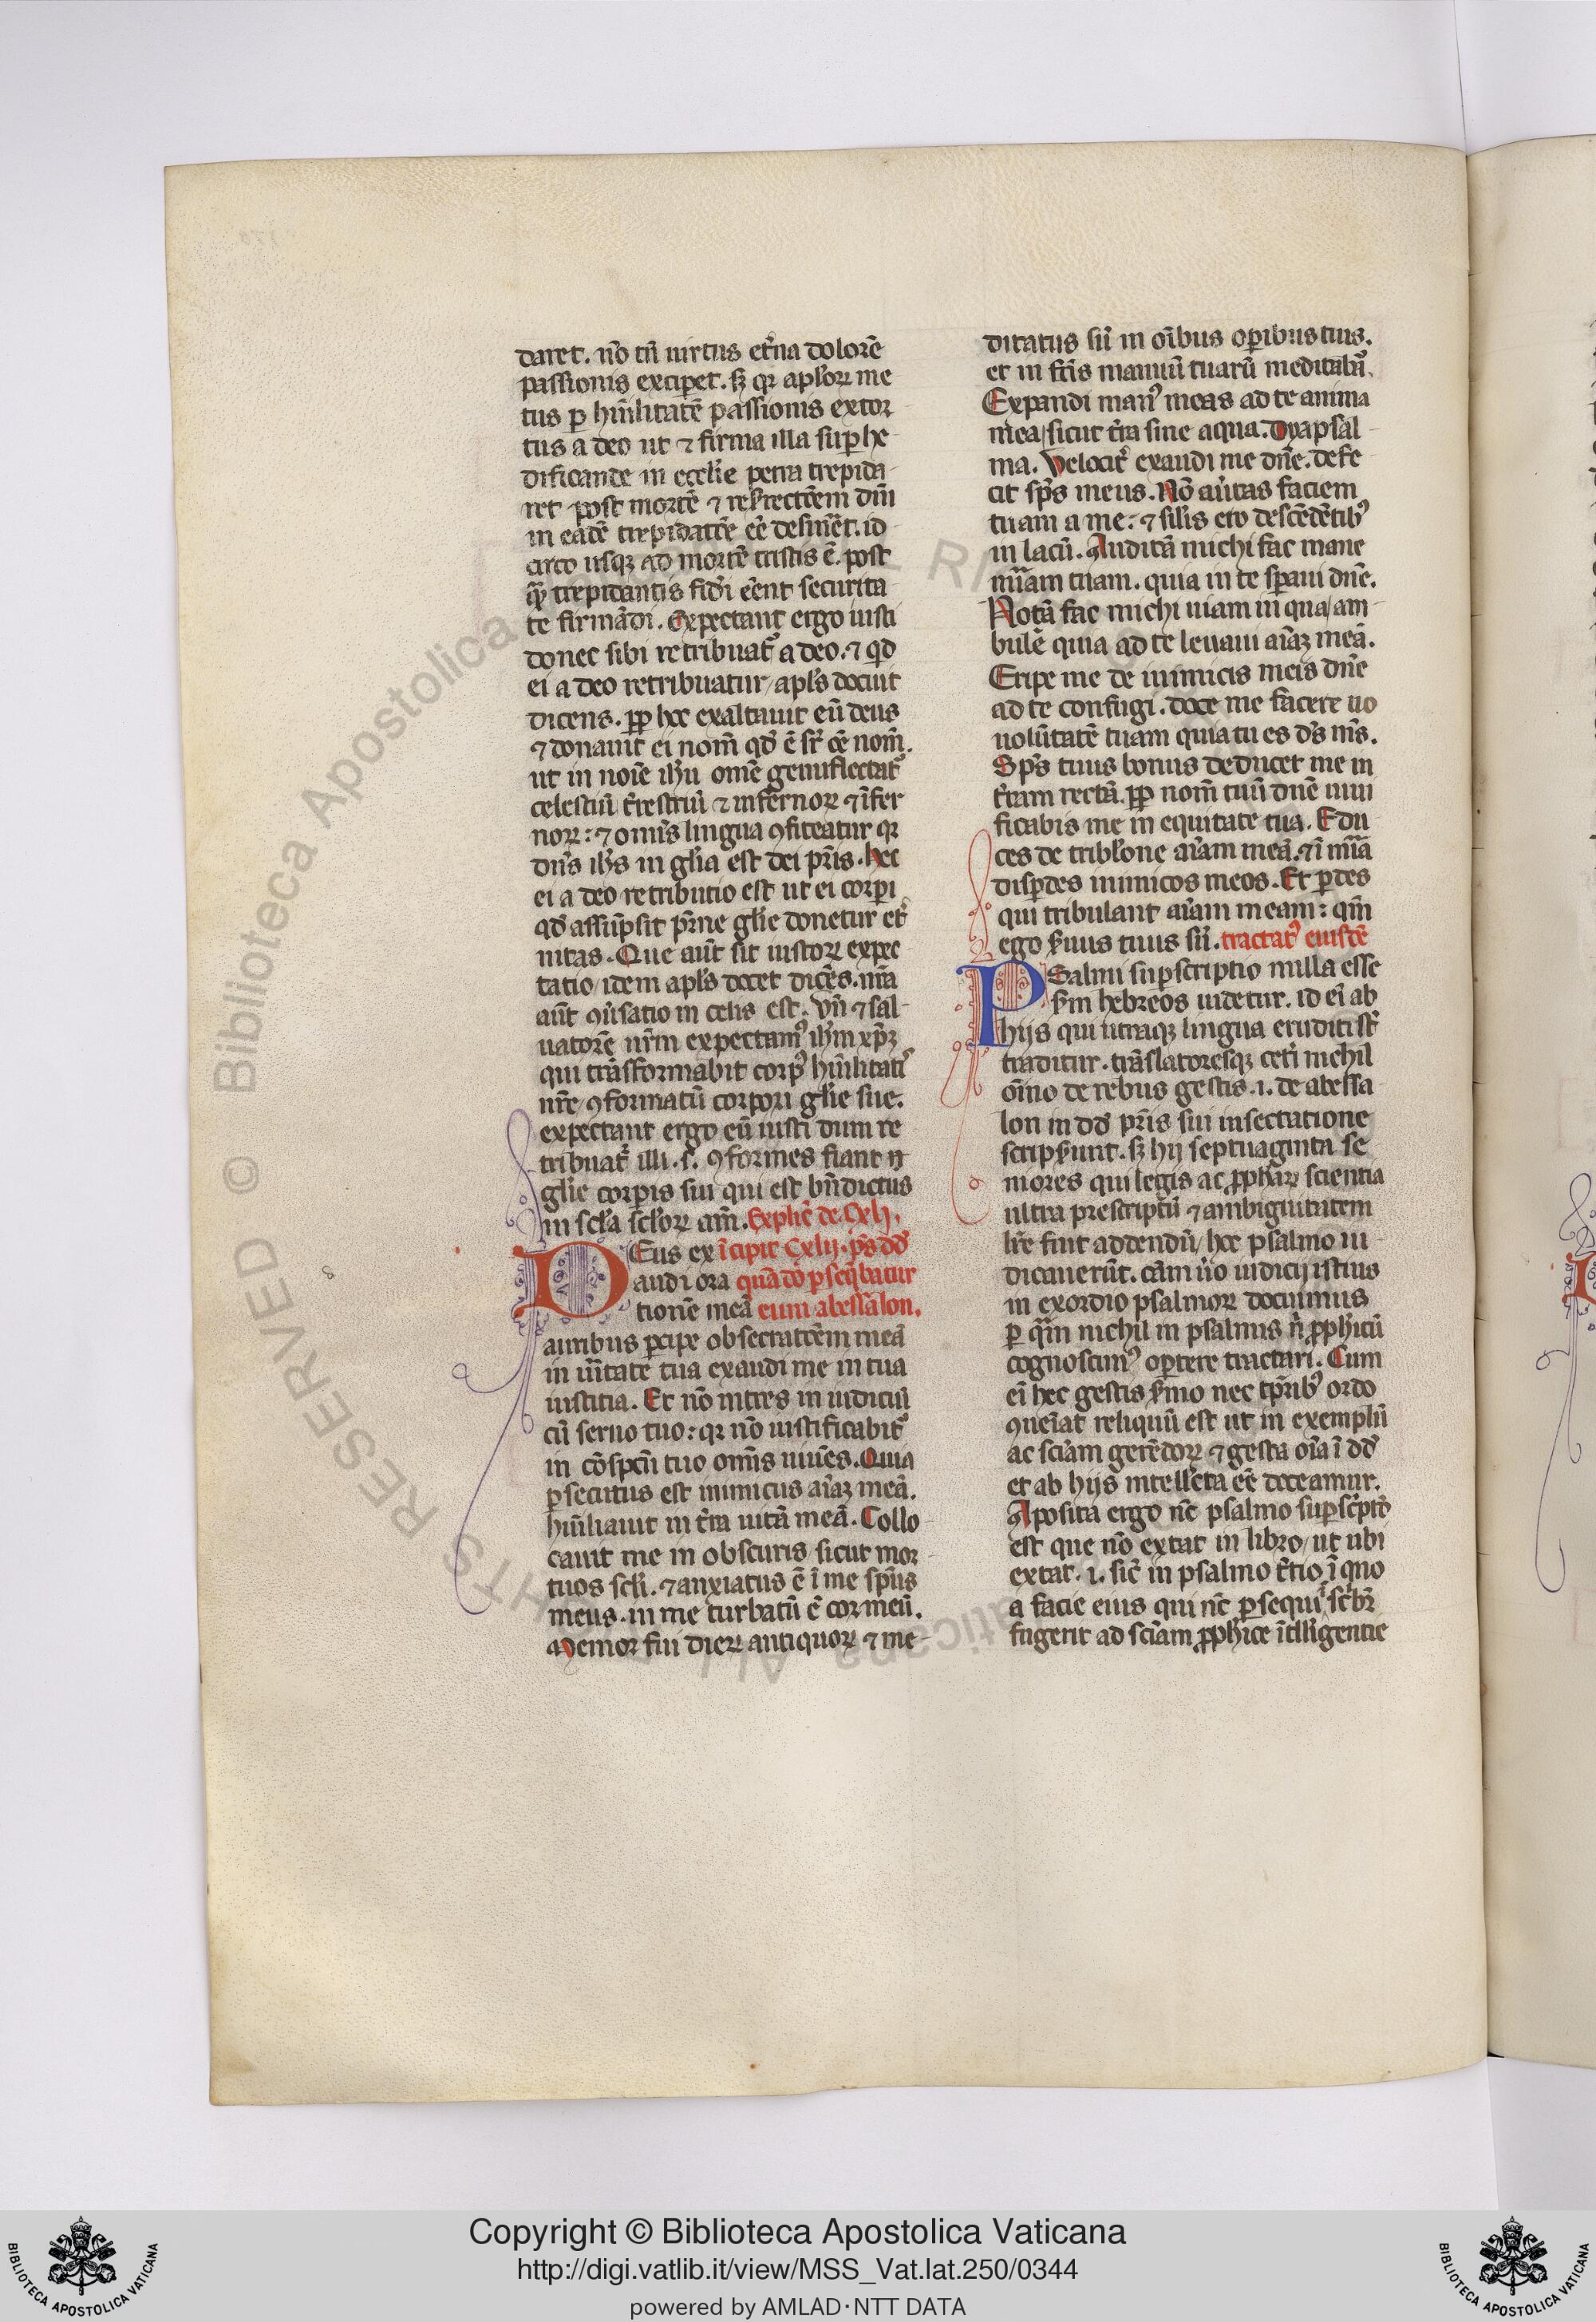 daret. nō tn̄ uirtus et̄na dolorē
passionis exciperet. sꝫ qꝛ aplʼoꝝ me
tus ꝑ hūilitatē passionis extor
tus a deo ut ⁊ firma illa suꝑ he-
dificande in ecclʼie petra trepida-
ret post mortē ⁊ resʼrectōem dn̄i
in eadē trepidatōe eē desineret. id-
circo usqꝫ ad mortē tristis ē. post
quā trepidantis fidei eēnt securita-
te firmādi. Expectant ergo iusti
donec sibi retribuat᷑ a deo. ⁊ qd̄
ei a deo retribuatur / aplʼs docuit
dicens. ꝓp hec exaltauit eū deus
⁊ donauit ei nom̄ qd̄ ē sr̄ oē nom̄.
ut in noīe ihʼu om̄e genu flectat᷑
celestiū t̄restriū ⁊ infernoꝝ ⁊ īfer
noꝝ: ⁊ om̄is lingua ꝯfiteatur qꝛ
dn̄s ihʼs in glʼia est dei pr̄is. hec
ei a deo retributio est ut ei corpi
qd̄ assūpsit pr̄ne glʼie donetur et̄
nitas. Que aūt sit iustoꝝ expec
tatio / idem aplʼs docet dicēs. nr̄a
aūt ꝯuʼsatio in celis est. Vn̄ ⁊ sal-
uatorē nr̄m expectamꝰ ihʼm xp̄ꝫ
qui trāsformabit corpꝰ hūilitatꝭ
nr̄e / ꝯformatū corpori glʼie sue.
expectant ergo eū iusti dum re
tribuat᷑ illi. s. ꝯformes fiant
glʼie corpis sui qui est bn̄dictus
in sclʼa sclʼoꝝ am̄. Explic̄ de Cxlj.
DEus ex īcipit Cxlij. ps̄ dd̄
audi ora quādo ꝑseq̄batur
tionē meā eum abessalon.
auribus ꝑcipe obsecratōem meā
in uītate tua exaudi me in tua
iustitia. Et nō intres in iudiciū
cū seruo tuo: qꝛ nō iustificabit᷑
in cōspcū tuo om̄s uiuēs. Quia
ꝑsecutus est inimicus aīaꝫ meā.
hūiliauit in t̄ra uitā meā. Collo-
cauit me in obscuris / sicut mor-
tuos sclʼi. ⁊ anxiatus ē ī me spūs
meus. in me turbatū ē cor meū.
Memor fui dieꝝ antiquoꝝ ⁊ me-
ditatus sū in oībus oꝑibus tuis.
et in fc̄is manuū tuarū meditabar.
Expandi manꝰ meas ad te anima
mea / sicut t̄ra sine aqua. Dyapsal-
ma. Velocit̄ exaudi me dn̄e. defe
cit sp̄s meus. Nō auʼtas faciem
tuam a me: ⁊ silʼis ero descēdētibꝰ
in lacū. Auditā michi fac mane
mīam tuam. quia in te sꝑaui dn̄e.
Notā fac michi uiam in qua / am-
bulē quia ad te leuaui aīaꝫ meā.
Eripe me de inimicis meis dn̄e
ad te confugi. doce me facere uo
uolūtatē tuam quia tu es ds̄ ms̄.
Sp̄s tuus bonus deducet me in
t̄ram rectā. ꝓp nom̄ tuū dn̄e uiui
ficabis me in equitate tua. Edu
ces de triblʼone aīam meā. ⁊ ī mīa
disꝑdes inimicos meos. Et ꝑdes
qui tribulant aīam meam: qm̄
ego sʼuus tuus sū. tractatꝰ eiusdē
PSalmi suꝑscriptio nulla esse
sʼm hebreos uidetur. id eī ab
hijs qui utraqꝫ lingua eruditi sr̄
traditur. trāslatoresqꝫ cet̄i nichil
oīno de rebus gestis. i. de abessa
lon in dd̄ pr̄is sui insectatione
scripsʼunt. sꝫ hij septuaginta se
niores qui legis ac ꝓphaꝝ scientia
ultra prescriptū ⁊ ambiguitatem
lr̄e fuit addendū / hec psalmo iu-
dicauerūt. cām uʼo iudicij istius
in exordio psalmoꝝ docuimus
ꝑ qām nichil in psalmis nʼ ꝓphʼicū
cognoscimꝰ oꝑtere tractari. Cum
eī hec gestis sʼmo nec tp̄ribꝰ ordo
ꝯueniat reliquū est ut in exemplū
ac sciām gerēdoꝝ ⁊ gesta oīa ī dd̄
et ab hijs intellʼcta eē doceamur.
Aposita ergo nc̄ psalmo suꝑsc̄ptō
est que nō extat in libro / ut ubi
extat. i. sic̄ in psalmo t̄tio ī quo
a facie eius qui nc̄ ꝑsequi sc̄br̄
fugerit ad sciām ꝓphʼice ītellʼigentie
Copyright © Biblioteca Apostolica Vaticana
http://digi.vatlib.it/view/MSS_Vat.lat.250/0344
powered by AMLAD·NTT DATA
BIBLIOTECA APOSTOLICA VATICANA
BIBLIOTECA APOSTOLICA VATICANA